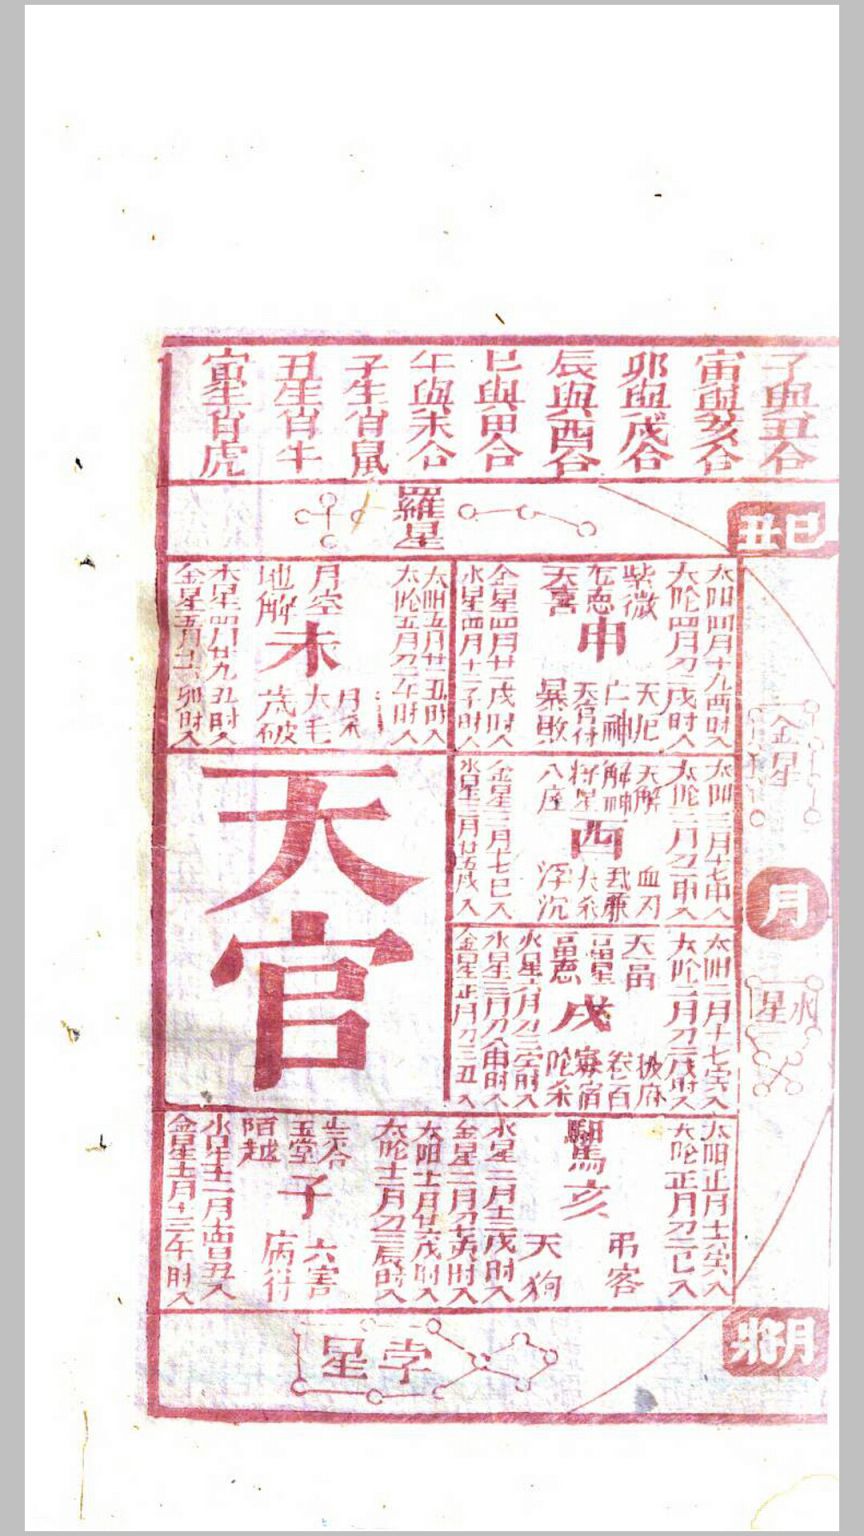 子與丑合
寅與亥合
卯與戌合
辰與酉合
巳與申合
午與未合
子生肖鼠
丑生肖牛
寅生肖虎
丑巳
羅星
太陽四月十九酉時入
太陰四月初二戌時入
紫微
天喜
申
天厄
亡神
天官符
暴敗
金星四月廿一戌時入
水星四月十二子時入
太陽五月廿一丑時入
太陰五月初二午時入
月空
地解
未
月杀
大毛
歲破
木星四月廿九丑時入
金星五月
卯時入
金星
太陽三月十七申入
太陰三月初二申入
天解
解神
將星
八座
酉
血刃
大杀
浮沉
金星三月十七巳入
水星二月廿五戌入
天官
月
太陽二月十七亥入
太陰二月初二戌時入
戌
披麻
卷舌
寡宿
陀杀
火星六月初三亥時入
水星三月初八申時入
金星正月初三丑入
水星
太陽正月十六亥入
太陰正月初二巳入
亥
弔客
天狗
水星二月十三戌時入
金星二月初七亥時入
太陽十二月廿六戌時入
太陰十二月初二辰時入
玉堂
陌越
子
六害
病符
水星十二月十四日丑入
金星十二月十三午時入
將月
星孛